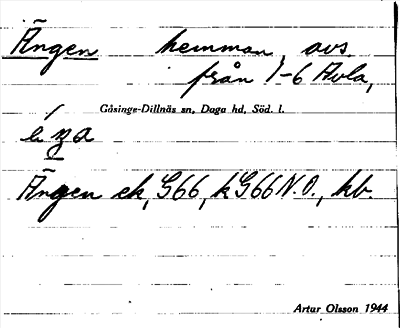 Ängen hemman, avs.
från 1-6 Avla,
Gåsinge-Dillnäs sn, Daga hd, Söd. l.
Ängen ek, G66, k G66 N.O., kb.
Artur Olsson 1944